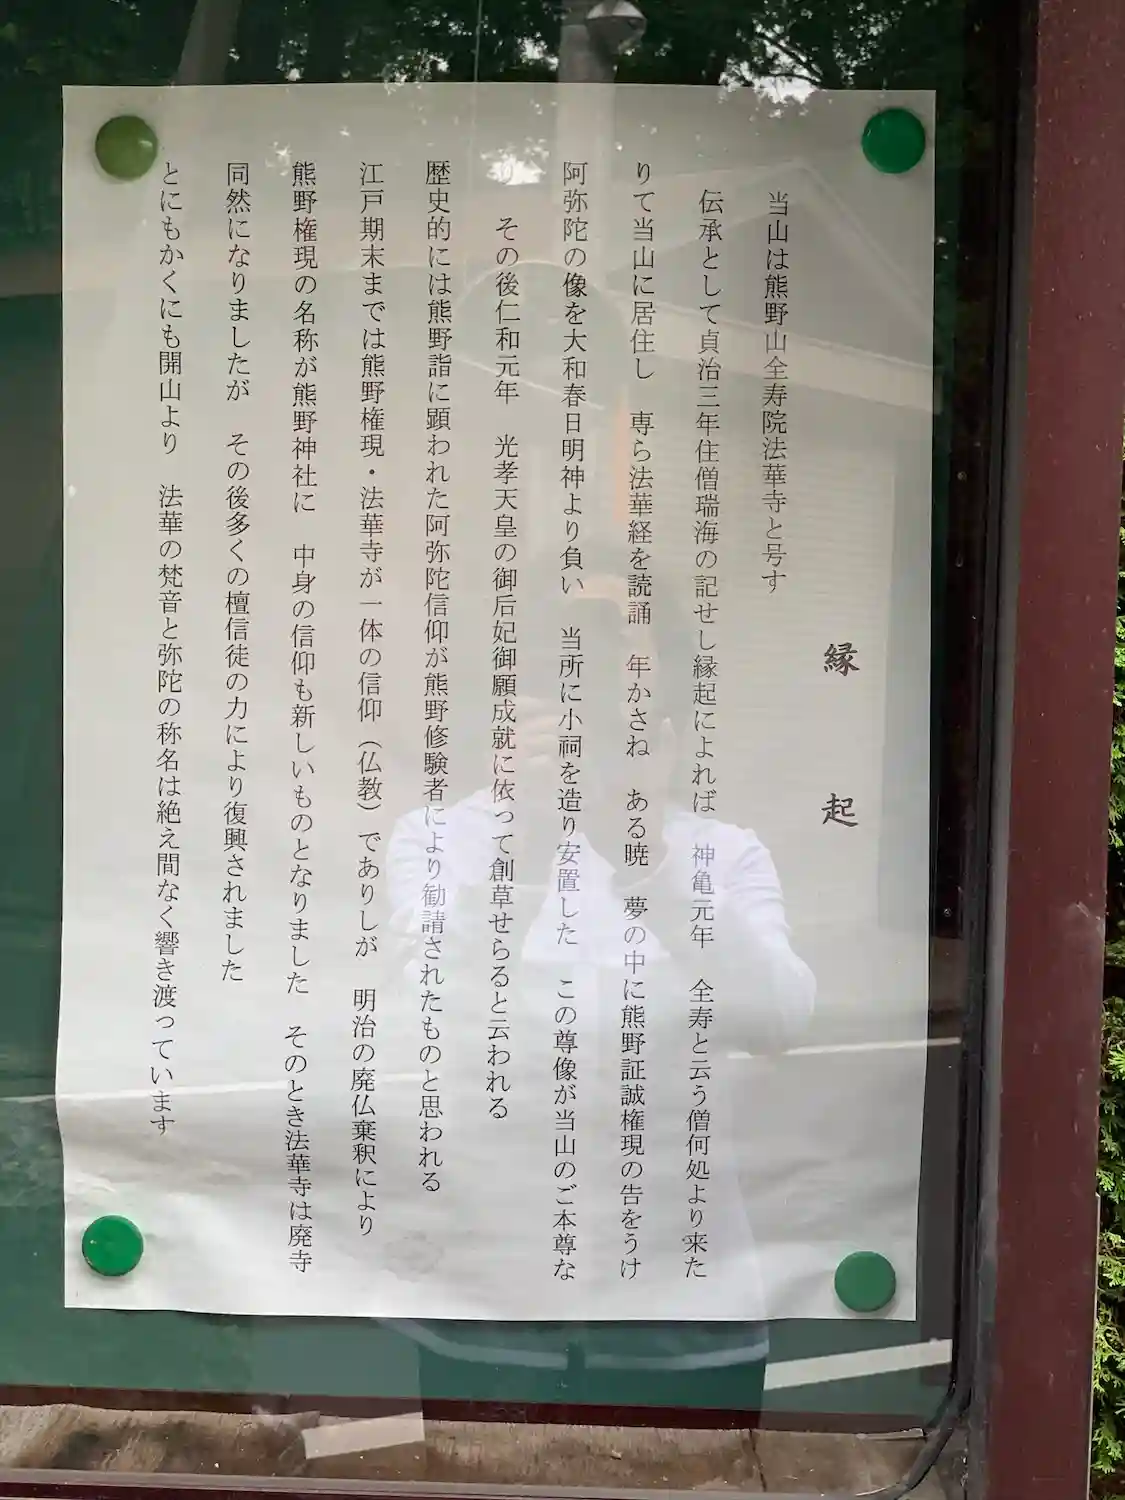 縁起
当山は熊野山全寿院法華寺と号す
伝承として貞治三年住僧瑞海の記せし縁起によれば 神亀元年 全寿と云う僧何処より来た
りて当山に居住し 専ら法華経を読誦 年かさね ある暁 夢の中に熊野証誠権現の告をうけ
阿弥陀の像を大和春日明神より負い 当所に小祠を造り安置した この尊像が当山のご本尊な
り その後仁和元年 光孝天皇の御后妃御願成就に依って創草せらると云われる
歴史的には熊野詣に顕われた阿弥陀信仰が熊野修験者により勧請されたものと思われる
江戸期末までは熊野権現・法華寺が一体の信仰（仏教）でありしが 明治の廃仏棄釈により
熊野権現の名称が熊野神社に 中身の信仰も新しいものとなりました そのとき法華寺は廃寺
同然になりましたが その後多くの檀信徒の力により復興されました
とにもかくにも開山より 法華の梵音と弥陀の称名は絶え間なく響き渡っています